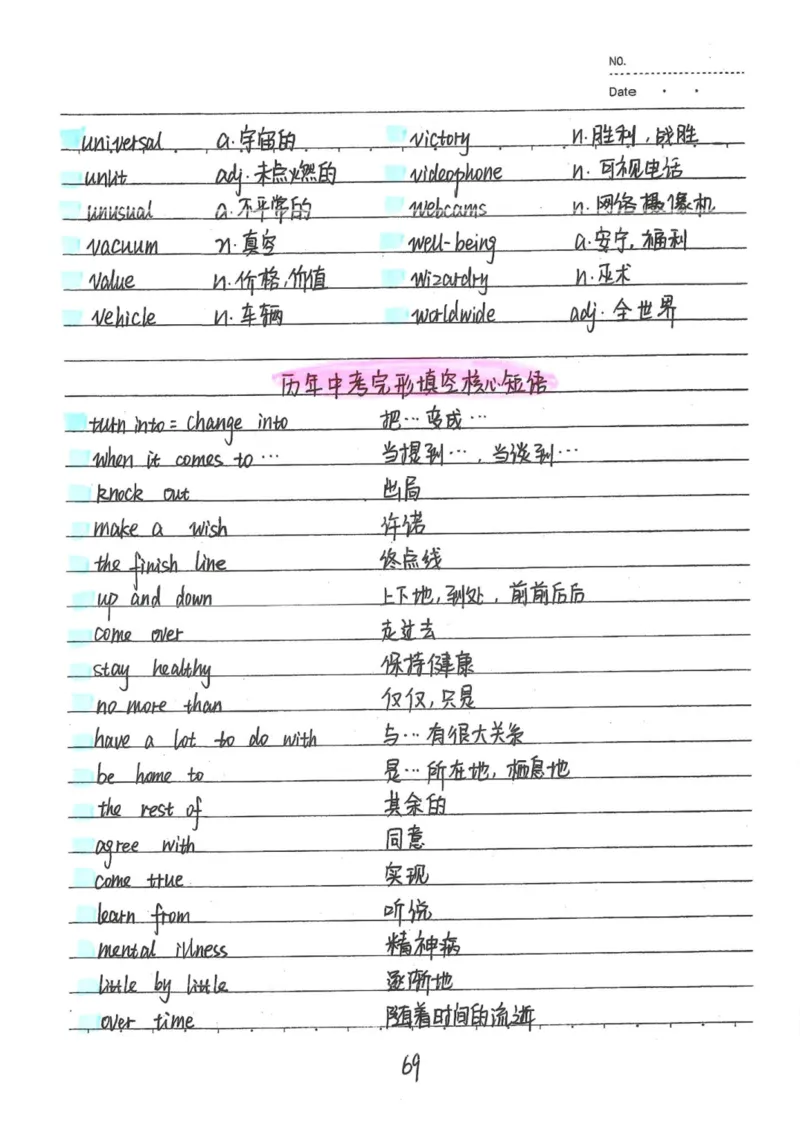 NO.
Date
universal a.宇宙的 victory n.胜利,战胜
unlit adj.未点燃的 videophone n.可视电话
unusual a.不平常的 webcams n.网络摄像机
vacuum n.真空 well-being a.安宁,福利
value n.价格,价值 wizardry n.巫术
vehicle n.车辆 worldwide adj.全世界
历年中考完形填空核心短语
turn into = change into 把…变成…
when it comes to … 当提到…,当谈到…
knock out 出局
make a wish 许诺
the finish line 终点线
up and down 上下地,到处,前前后后
come over 走过去
stay healthy 保持健康
no more than 仅仅,只是
have a lot to do with 与…有很大关系
be home to 是…所在地,栖息地
the rest of 其余的
agree with 同意
come true 实现
learn from 听说
mental illness 精神病
little by little 逐渐地
over time 随着时间的流逝
69